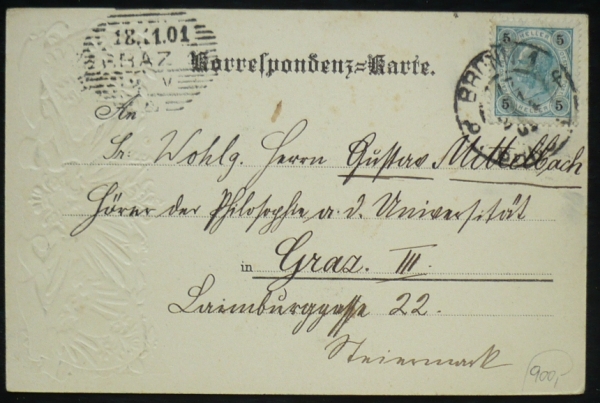 18.11.01
GRAZ
Korrespondenz-Karte.
5 HELLER 5
5 5
An
Sr. Wohlg. Herrn Gustav Mittelbach
Hörer der Philosophie a. d. Universität
in Graz. III.
Laimburggasse 22.
Steiermark
900,-